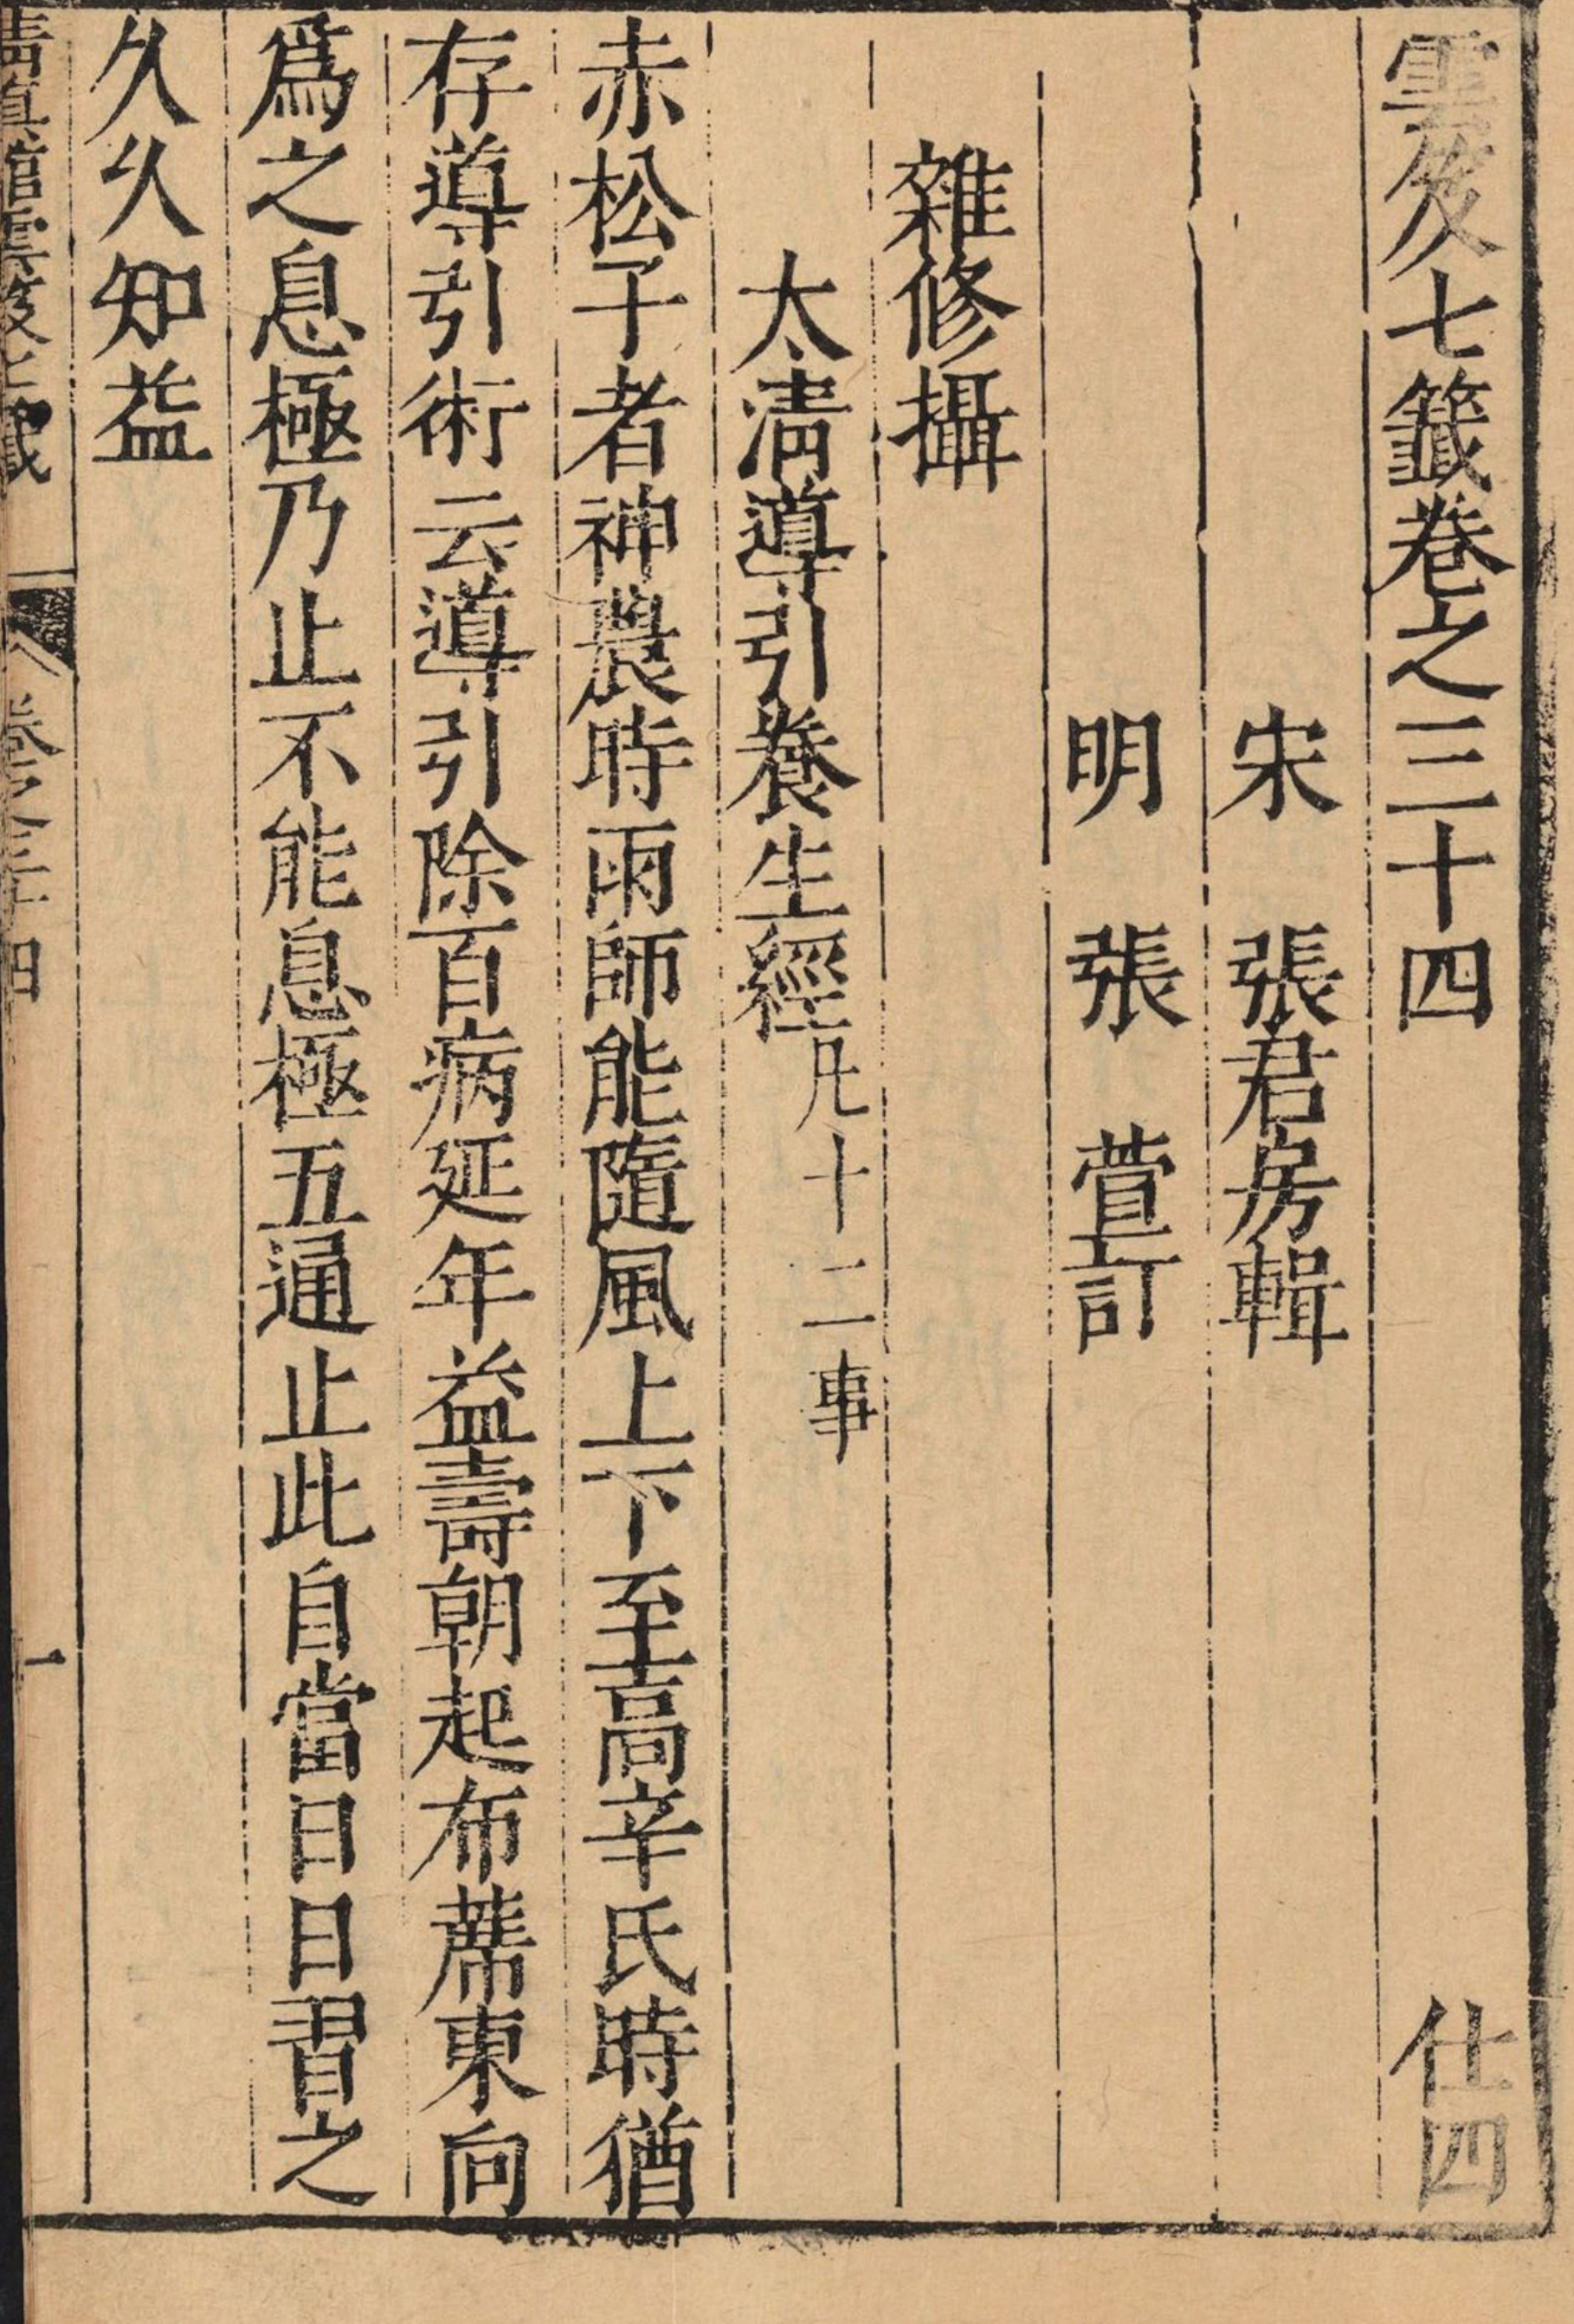 雲笈七籤卷之三十四　仕四
宋　張君房輯
明　張　萱訂
雜修攝
太清導引養生經凡十二事
赤松子者神農時雨師能隨風上下至高辛氏時猶
存導引術云導引除百病延年益壽朝起布蓆東向
爲之息極乃止不能息極五通止此自當日日習之
久久知益
清真館雲笈七籤　卷之三十四　一